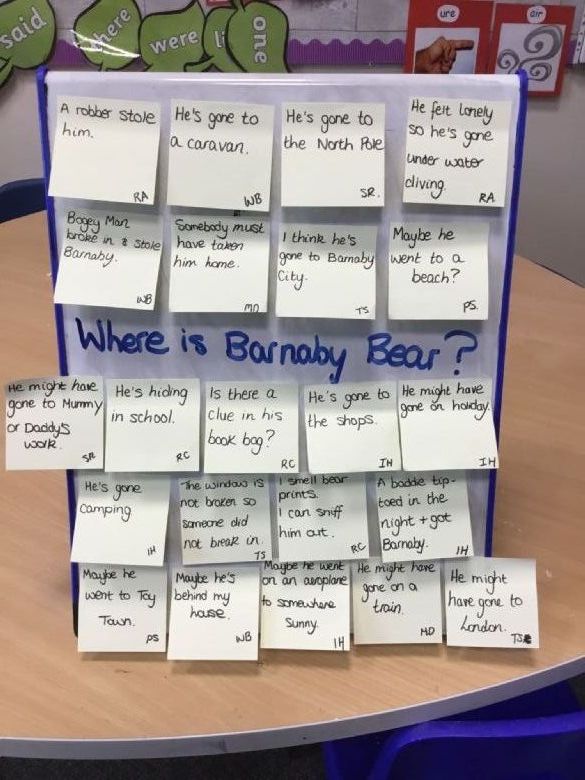 said
there
were
li
one
ure
air
A robber stole
him.
RA
He's gone to
a caravan.
WB
He's gone to
the North Pole
SR.
He felt lonely
so he's gone
under water
diving.
RA
Bogey Man
broke in & stole
Barnaby.
WB
Somebody must
have taken
him home.
MD
I think he's
gone to Barnaby
City.
TS
Maybe he
went to a
beach?
PS.
Where is Barnaby Bear?
He might have
gone to Mummy
or Daddy's
work.
SR
He's hiding
in school.
RC
Is there a
clue in his
book bag?
RC
He's gone to
the shops.
IH
He might have
gone on holiday.
IH
He's gone
camping
IH
The window is
not broken so
someone did
not break in.
TS
I smell bear
prints.
I can sniff
him out.
RC
A baddie tip-
toed in the
night + got
Barnaby.
IH
Maybe he
went to Toy
Town.
PS
Maybe he's
behind my
house.
WB
Maybe he went
on an aeroplane
to somewhere
Sunny.
IH
He might have
gone on a
train.
MD
He might
have gone to
London.
TS